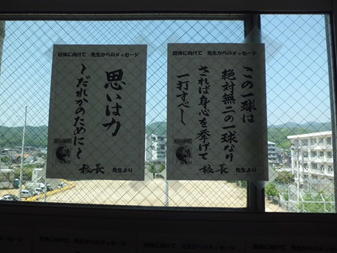 総体に向けて 先生からのメッセージ
この一球は
絶対無二の一球なり
されば身心を挙げて
一打すべし
校長 先生より
総体に向けて 先生からのメッセージ
思いは力
～だれかのために～
校長 先生より